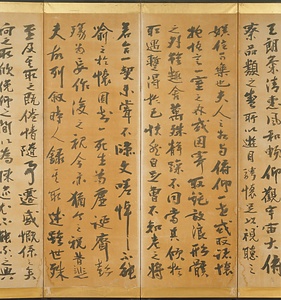 天朗氣清惠風和暢仰觀宇宙之大俯
察品類之盛所以遊目騁懷足以極視聽之
娛信可樂也夫人之相與俯仰一世或取諸懷
抱悟言一室之內或因寄所託放浪形骸
之外雖趣舍萬殊靜躁不同當其欣於
所遇暫得於己快然自足曾不知老之將
至及其所之既倦情隨事遷感慨係之矣
向之所欣俛仰之間以為陳迹猶不能不以之興
若合一契未嘗不臨文嗟悼不能
喻之於懷固知一死生為虛誕齊彭
殤為妄作後之視今亦猶今之視昔悲
夫故列敘時人錄其所述雖世殊